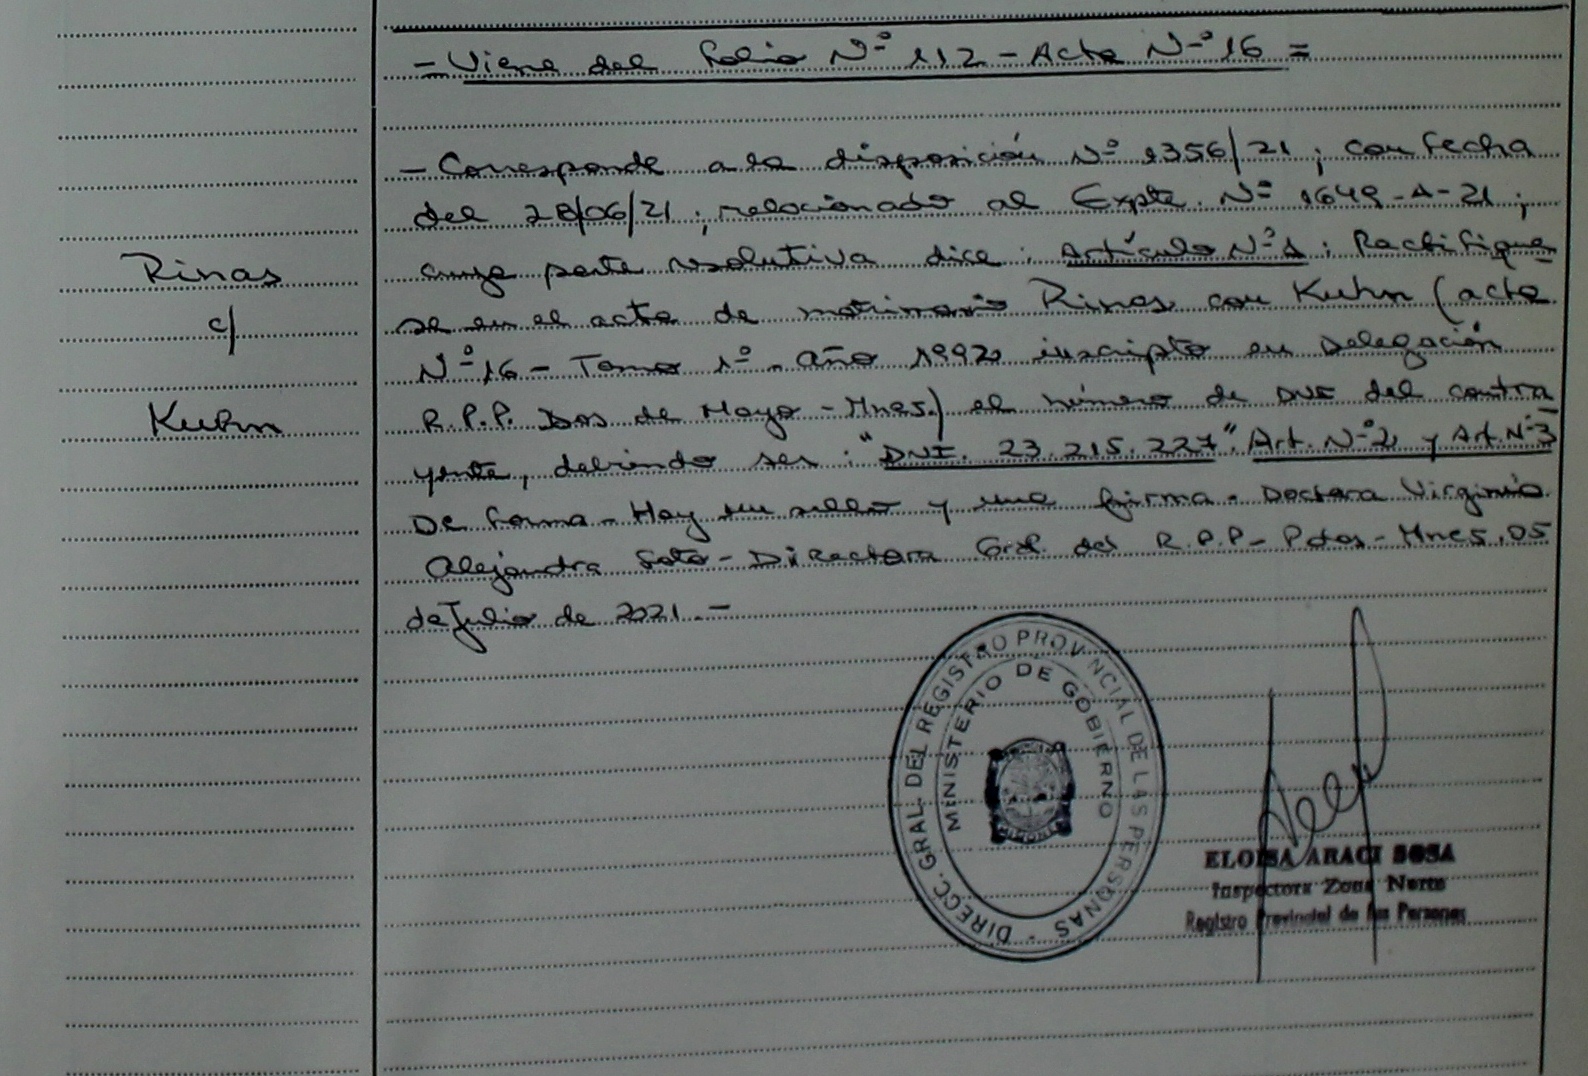 - Viene del folio Nº 112 - Acta Nº 16 =
- Corresponde a la disposición Nº 1356/21; con fecha
del 28/06/21; relacionado al Expte. Nº 1649-A-21;
cuya parte resolutiva dice: Artículo Nº 1: Rectifíque-
se en el acta de matrimonio Rinas con Kuhn (acta
Nº 16 - Tomo 1º - año 1992 inscripto en Delegación
R.P.P. Dos de Mayo - Mnes.) el número de DNI del contra
yente, debiendo ser: "DNI. 23.215.227". Art. Nº 2 y Art. Nº 3
De forma - Hay un sello y una firma - Doctora Virginia
Alejandra Soto - Directora Gral. del R.P.P - Pdas - Mnes, 05
de Julio de 2021.-
Rinas
c/
Kuhn
DIRECC. GRAL. DEL REGISTRO PROVINCIAL DE LAS PERSONAS -
MINISTERIO DE GOBIERNO
MISIONES
ELOISA ARACI SOSA
Inspectora Zona Norte
Registro Provincial de las Personas